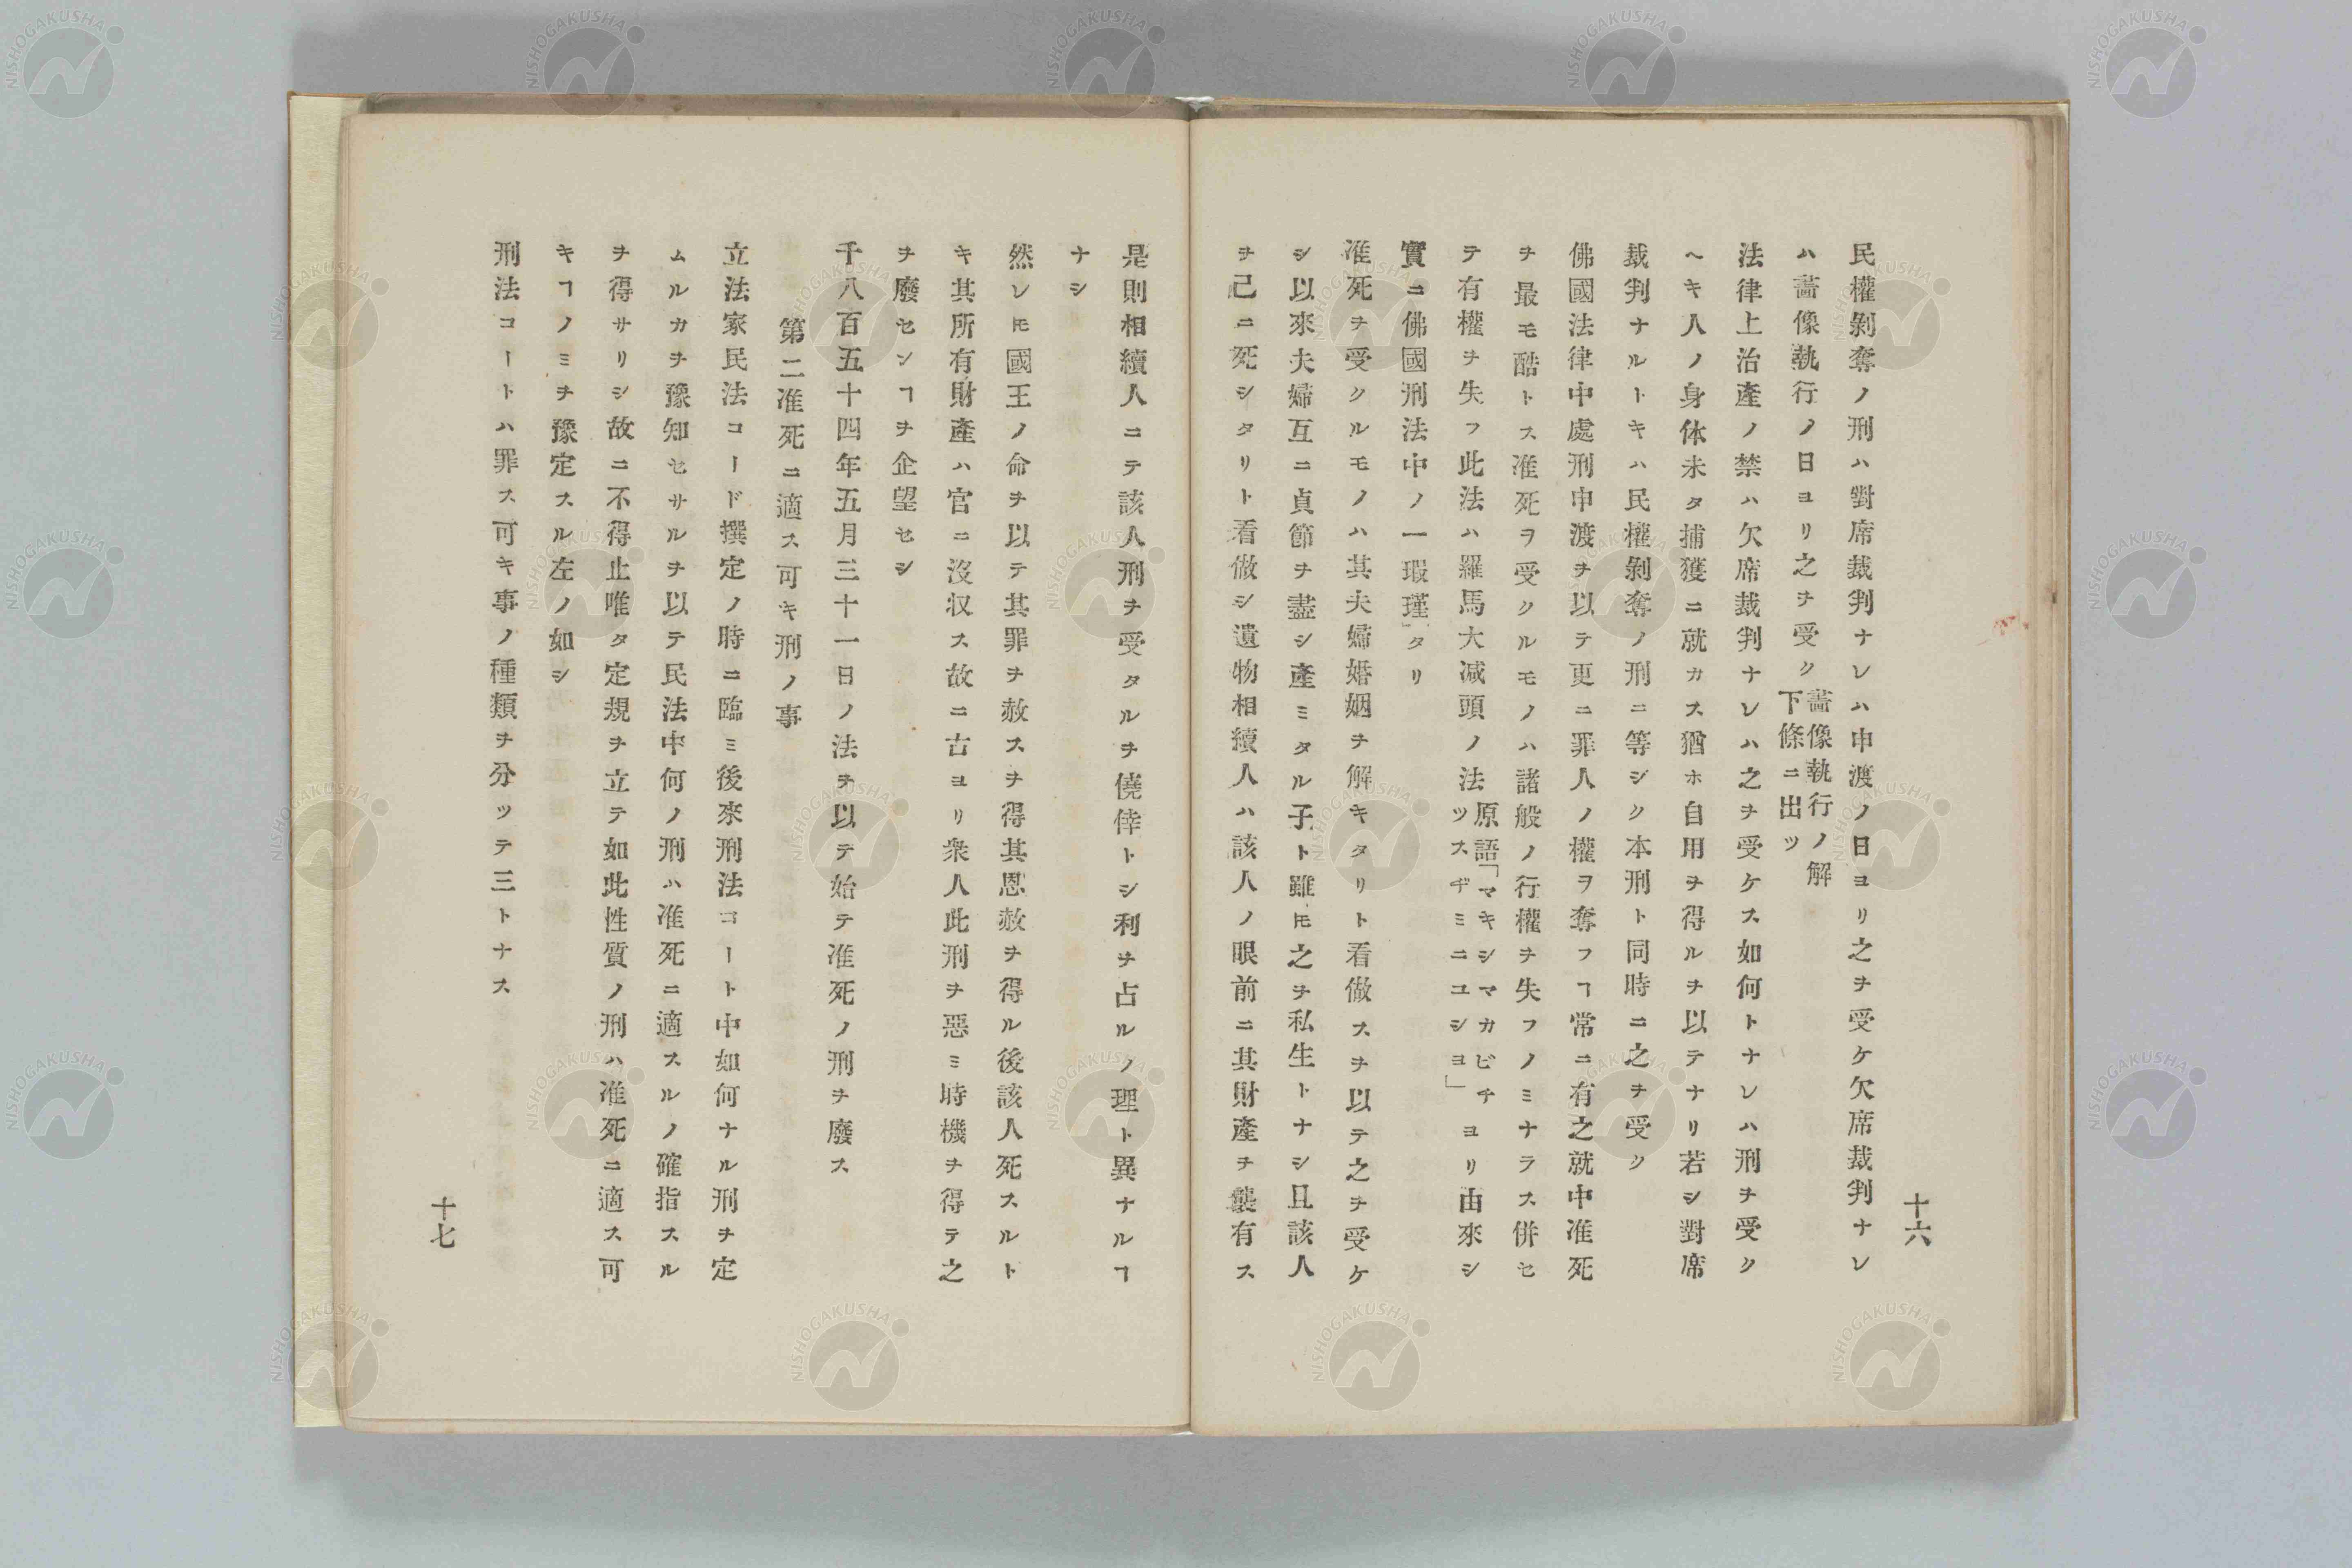 十六
民權剝奪ノ刑ハ對席裁判ナレハ申渡ノ日ヨリ之ヲ受ケ欠席裁判ナレ
ハ畵像執行ノ日ヨリ之ヲ受ク畵像執行ノ解下條ニ出ツ
法律上治產ノ禁ハ欠席裁判ナレハ之ヲ受ケス如何トナレハ刑ヲ受ク
ヘキ人ノ身体未タ捕獲ニ就カス猶ホ自用ヲ得ルヲ以テナリ若シ對席
裁判ナルトキハ民權剝奪ノ刑ニ等シク本刑ト同時ニ之ヲ受ク
佛國法律中處刑申渡ヲ以テ更ニ罪人ノ權ヲ奪フヿ常ニ有之就中准死
ヲ最モ酷トス准死ヲ受クルモノハ諸般ノ行權ヲ失フノミナラス併セ
テ有權ヲ失フ此法ハ羅馬大減頭ノ法原語「マキシマカビチツスヂミニユシヨ」ヨリ由來シ
實ニ佛國刑法中ノ一瑕瑾タリ
准死ヲ受クルモノハ其夫婦婚姻ヲ解キタリト看做スヲ以テ之ヲ受ケ
シ以來夫婦互ニ貞節ヲ盡シ產ミタル子ト雖モ之ヲ私生トナシ且該人
ヲ己ニ死シタリト看做シ遺物相續人ハ該人ノ眼前ニ其財產ヲ襲有ス
是則相續人ニテ該人刑ヲ受タルヲ僥倖トシ利ヲ占ルノ理ト異ナルヿ
ナシ
然レ𪜈國王ノ命ヲ以テ其罪ヲ赦スヲ得其恩赦ヲ得ル後該人死スルト
キ其所有財產ハ官ニ沒収ス故ニ古ヨリ衆人此刑ヲ惡ミ時機ヲ得テ之
ヲ廢センヿヲ企望セシ
千八百五十四年五月三十一日ノ法ヲ以テ始テ准死ノ刑ヲ廢ス
第二准死ニ適ス可キ刑ノ事
立法家民法コード撰定ノ時ニ臨ミ後來刑法コート中如何ナル刑ヲ定
ムルカヲ豫知セサルヲ以テ民法中何ノ刑ハ准死ニ適スルノ確指スル
ヲ得サリシ故ニ不得止唯タ定規ヲ立テ如此性質ノ刑ハ准死ニ適ス可
キヿノミヲ豫定スル左ノ如シ
刑法コートハ罪ス可キ事ノ種類ヲ分ツテ三トナス
十七
NISHOGAKUSHA